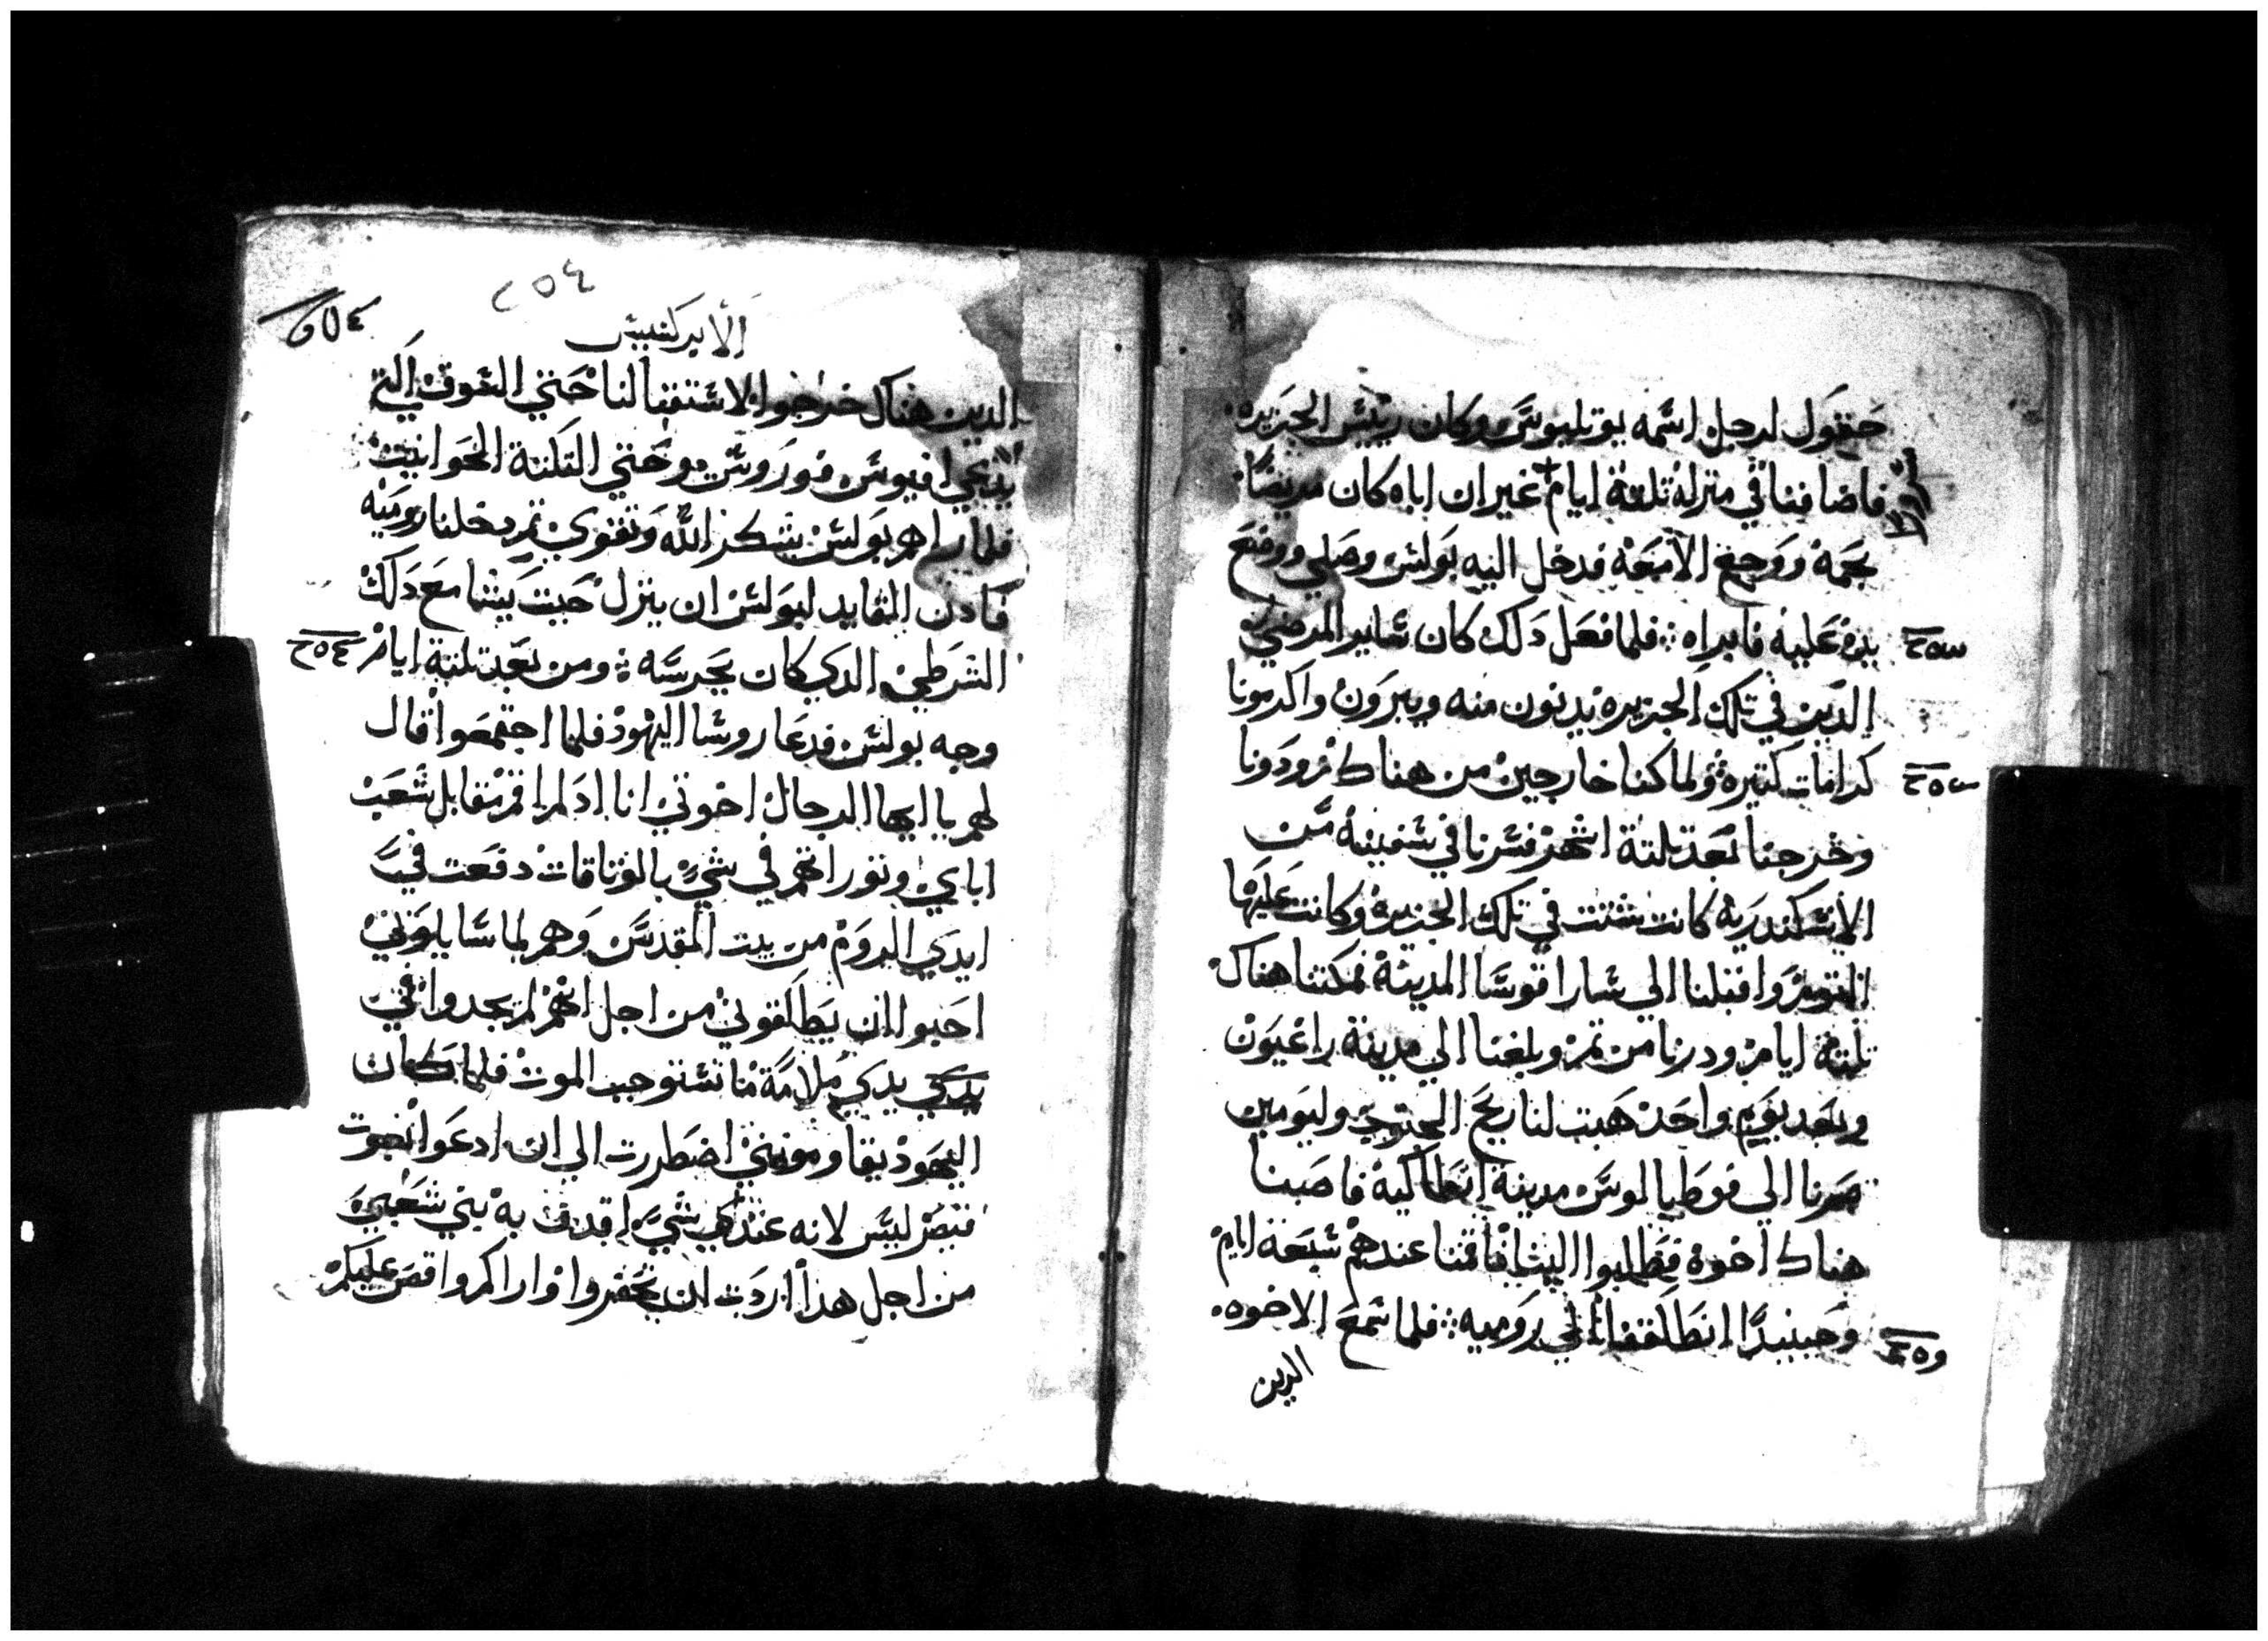 حقول لرجل اسمه بوتليوس وكان رييس الجزيره
فاضافنا في منزله تلتة ايام غير ان اباه كان مريضا
بحمه ووجع الامعه فدخل اليه بولس وصلي ووضع
يده عليه فابراه فلما فعل دلك كان ساير المرضي
الدين في تلك الجزيره يدنون منه ويبرون واكرمونا
كرامات كتيره ولما كنا خارجين من هناك زودونا
وخرجنا بعد تلتة اشهر فسرنا في سفينه من
الاسكندريه كانت شتت في تلك الجزيره وكانت عليها
التومر واقبلنا الي ساراقوسا المدينه فمكتنا هناك
تلتة ايام ودرنا من تم وبلغنا الي مدينة راغيون
وبعد يوم واحد هبت لنا ريح الجنوب وليومين
صرنا الي فوطيالوس مدينة ايطاليه فاصبنا
هناك اخوه فطلبوا الينا فاقمنا عندهم سبعة ايام
وحينيدا انطلقنا الي روميه فلما سمع الاخوه
الدين
٢٥٤
الابركسيس
الدين هناك خرجوا لاستقبالنا حتي السوق التي
يدعي افيوس فوروس وحتي التلتة الحوانيت
فلما راهم بولس يشكر الله وتقوي تم دخلنا روميه
فادن القايد لبولس ان ينزل حيت يشا مع دلك
الشرطي الدي كان يحرسه ومن بعد تلتة ايام
وجه بولس فدعا روسا اليهود فلما اجتمعوا قال
لهم يا ايها الرجال اخوتي انا اد لم اقم مقابل شعب
اباي وتوراتهم في شي بالوتاقات دفعت في
ايدي الروم من بيت المقدس وهم لما سايلوني
احبوا ان يطلقوني من اجل انهم لم يجدوا في
يدي ملامة ما تستوجب الموت فلما كان
اليهود يقاوموني اضطررت الي ان ادعوا بغوت
قيصر ليس لانه عندي شي اقدف به بني شعبي
من اجل هدا اردت ان تحضروا واراكم واقص عليكم